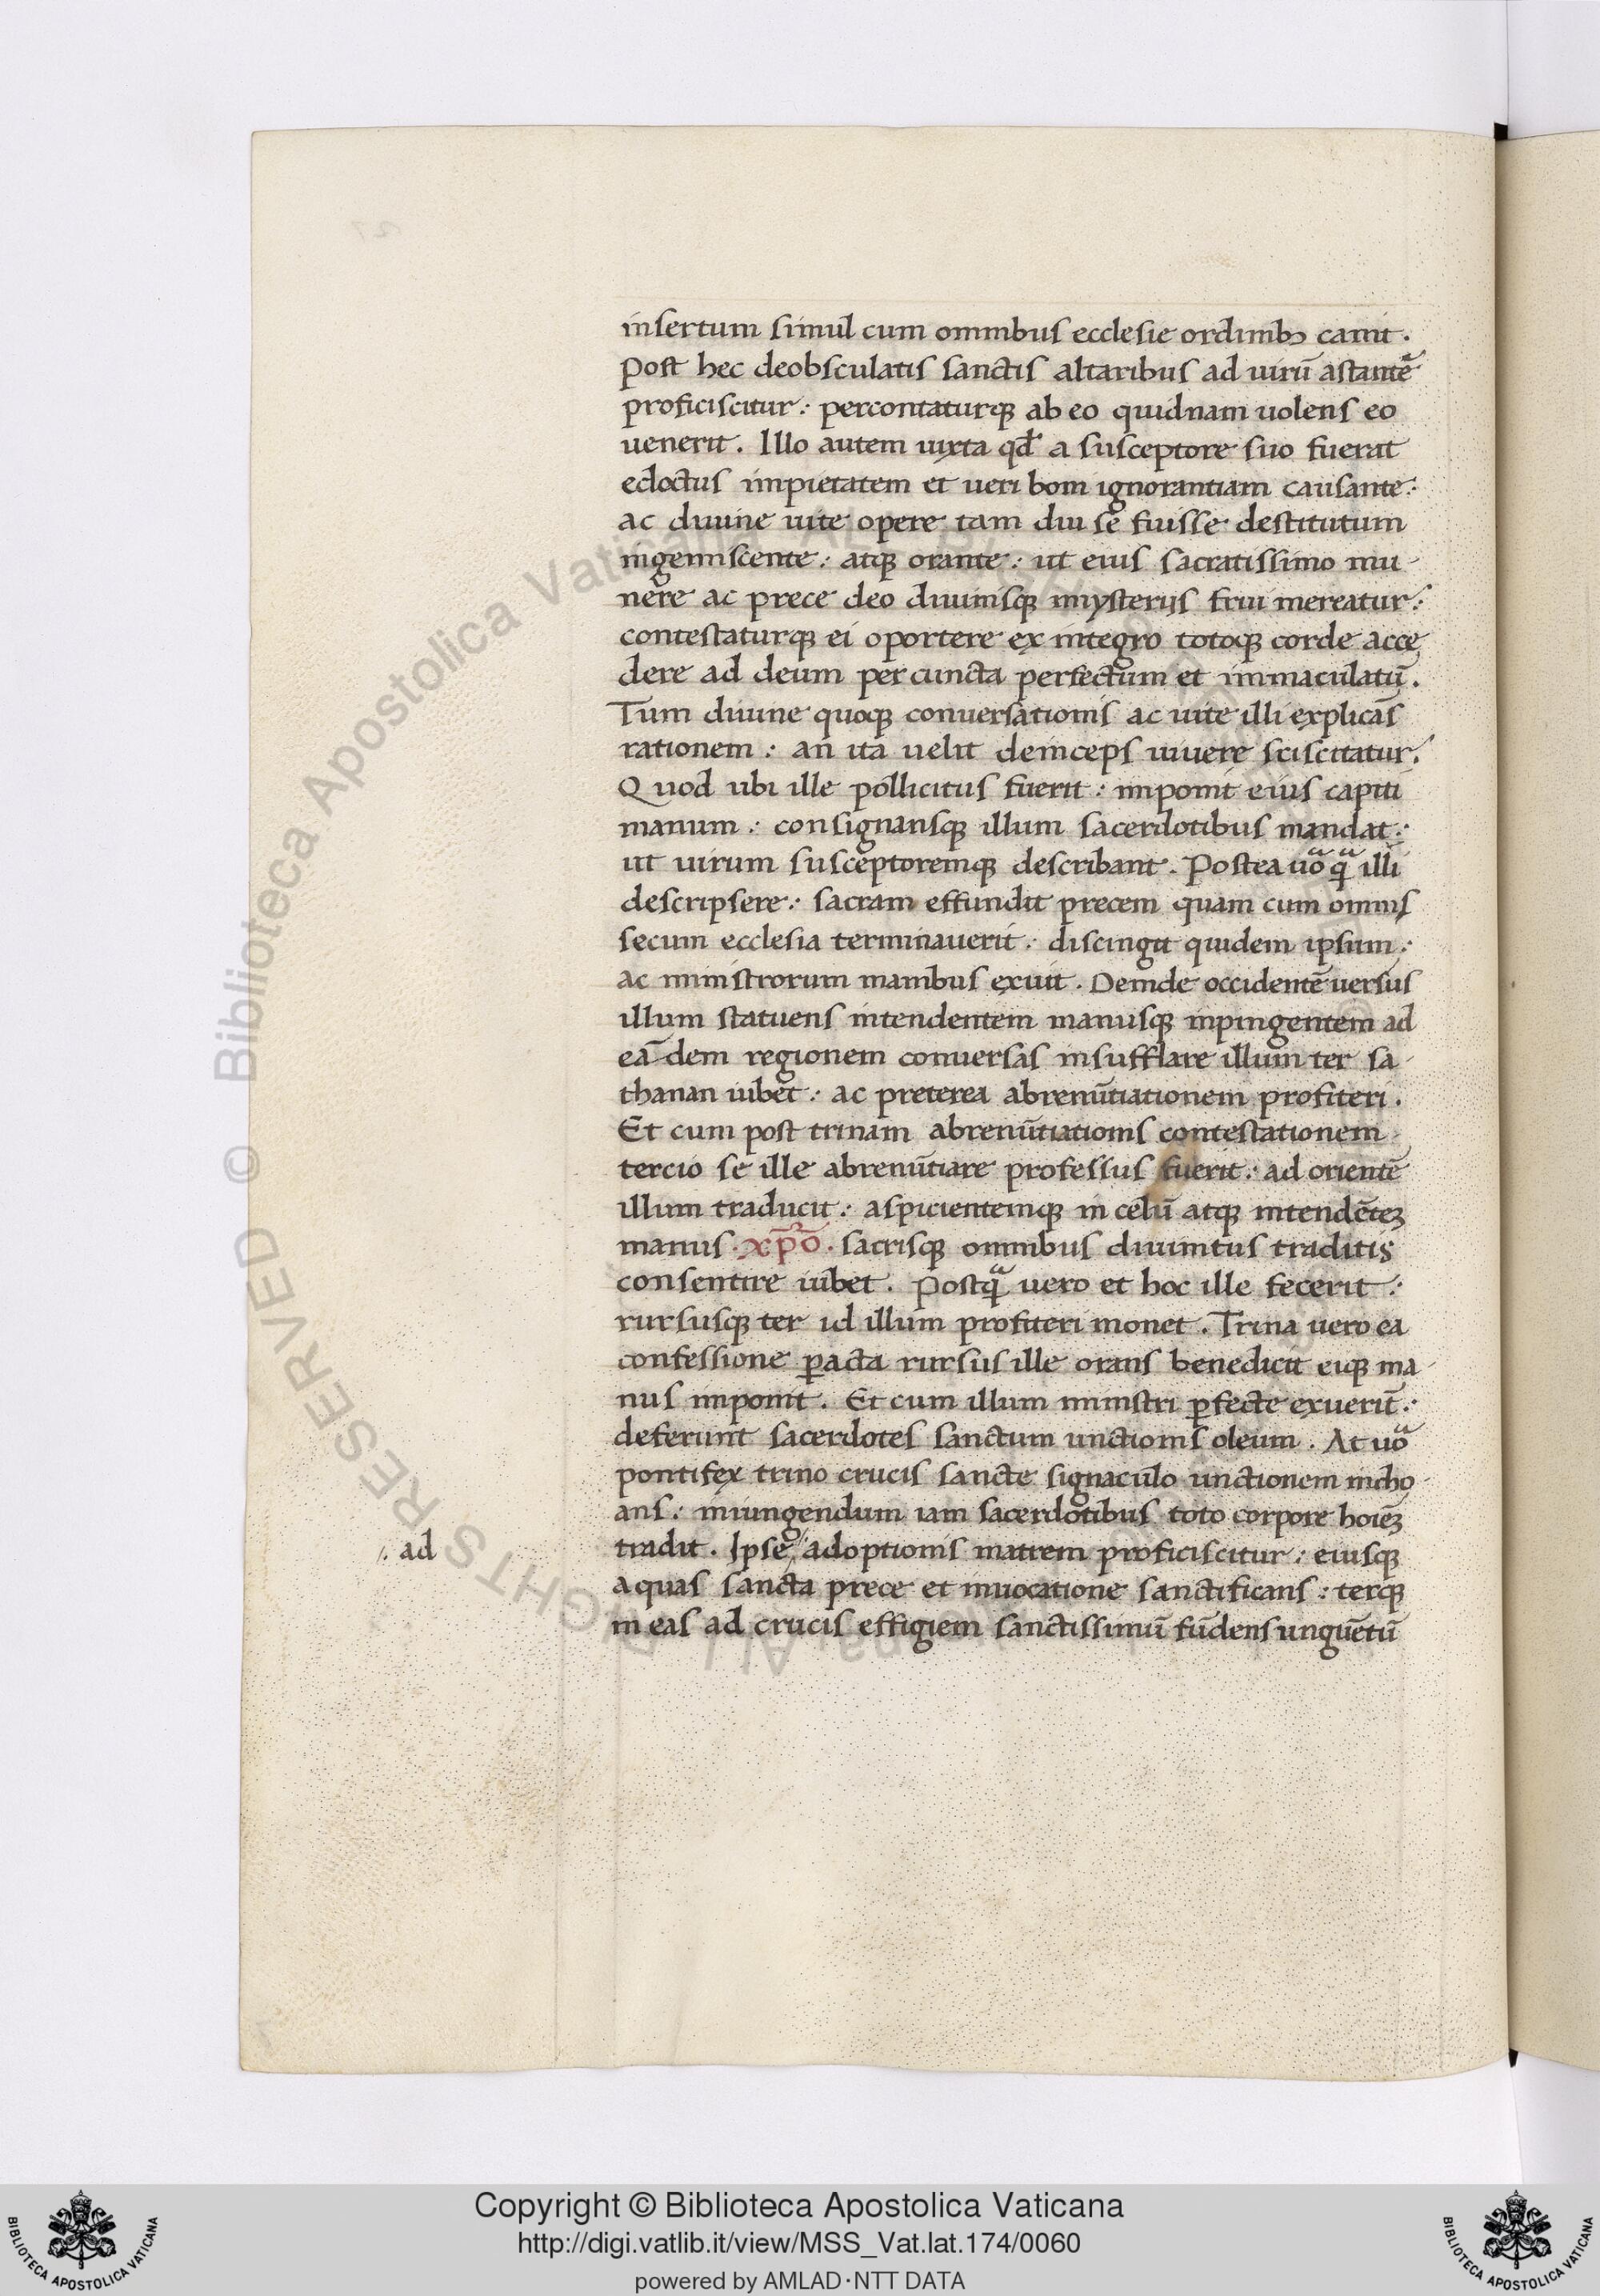 insertum simul cum omnibus ecclesie ordinibꝫ canit.
Post hec deobsculatis sanctis altaribus ad uirū astantē
proficiscitur: percontaturqꝫ ab eo quidnam uolens eo
uenerit. Illo autem iuxta qđ a susceptore suo fuerat
edoctus impietatem et ueri boni ignorantiam causante:
ac diuine uite opere tam diu se fuisse destitutum
ingemiscente: atqꝫ orante: ut eius sacratissimo mu-
nere ac prece deo diuinisqꝫ mysterijs frui mereatur:
contestaturqꝫ ei oportere ex integro totoqꝫ corde acce
dere ad deum per cuncta perfectum et immaculatū.
Tum diuine quoqꝫ conuersationis ac uite illi explicās
rationem: an ita uelit deinceps uiuere sciscitatur.
Quod ubi ille pollicitus fuerit: imponit eius capiti
manum: consignansqꝫ illum sacerdotibus mandat:
ut uirum susceptoremqꝫ describant. Postea uō qᷓ illi
descripsere: sacram effundit precem quam cum omnis
secum ecclesia terminauerit: discingit quidem ipsum:
ac ministrorum manibus exuit. Deinde occidentē uersus
illum statuens intendentem manusqꝫ inpingentem ad
eādem regionem conuersas insufflare illum ter sa-
thanan iubet: ac preterea abrenūtiationem profiteri.
Et cum post trinam abrenūtiationis contestationem
tercio se ille abrenūtiare professus fuerit: ad orientē
illum traducit: aspicientemqꝫ in celū atqꝫ intendēteꝫ
manus. xp̄o. sacrisqꝫ omnibus diuinitus traditis
consentire iubet. Postqᷓ uero et hoc ille fecerit:
rursusqꝫ ter id illum profiteri monet. Trina uero ea
confessione ꝑacta rursus ille orans benedicit eiqꝫ ma-
nus imponit. Et cum illum ministri ꝑfecte exuerit̄:
deferunt sacerdotes sanctum unctionis oleum. At uō
pontifex trino crucis sancte signaculo unctionem incho-
ans: iniungendum iam sacerdotibus toto corpore hoīeꝫ
./. ad
tradit. Ipse / adoptionis matrem proficiscitur: eiusqꝫ
aquas sancta prece et inuocatione sanctificans: terqꝫ
in eas ad crucis effigiem sanctissimū fūdens unguētū
© Biblioteca Apostolica Vaticana ALL RIGHTS RESERVED
Copyright © Biblioteca Apostolica Vaticana
http://digi.vatlib.it/view/MSS_Vat.lat.174/0060
powered by AMLAD·NTT DATA
BIBLIOTECA APOSTOLICA VATICANA
BIBLIOTECA APOSTOLICA VATICANA